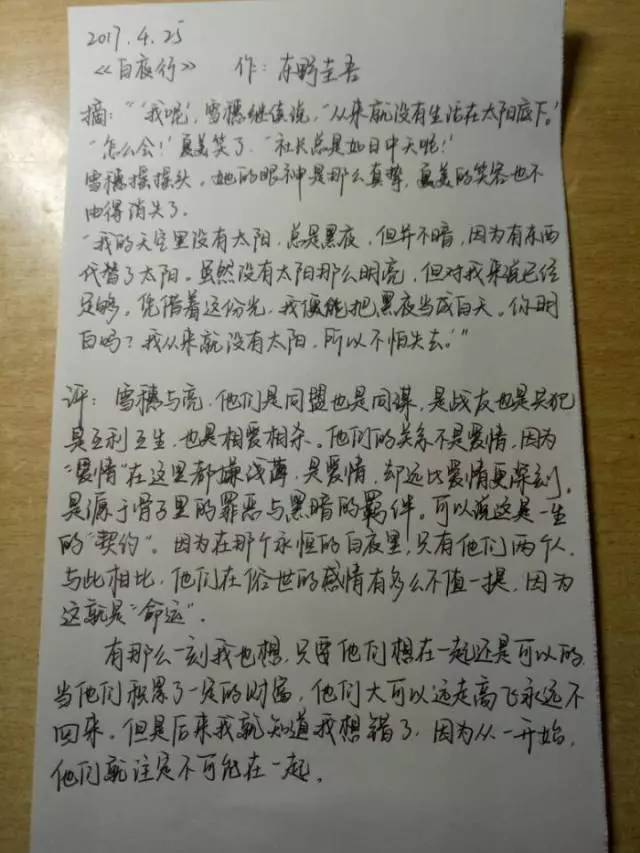 2017.4.25
《白夜行》 作:东野圭吾
摘:“‘我呢’,雪穗继续说,“从来就没有生活在太阳底下。’
“怎么会!’夏美笑了,“社长总是如日中天呢!’
雪穗摇摇头。她的眼神是那么真挚,夏美的笑容也不
由得消失了。
“我的天空里没有太阳,总是黑夜,但并不暗,因为有东西
代替了太阳。虽然没有太阳那么明亮,但对我来说已经
足够。凭借着这份光,我便能把黑夜当成白天。你明
白吗?我从来就没有太阳,所以不怕失去.’”
评:雪穗与亮,他们是同盟也是同谋,是战友也是共犯
是互利互生,也是相爱相杀。他们的关系不是爱情,因为
“爱情”在这里都嫌浅薄,是爱情,却远比爱情更深刻,
是源于骨子里的罪恶与黑暗的羁绊。可以说这是一生
的“契约”。因为在那个永恒的白夜里,只有他们两个人,
与此相比,他们在俗世的感情有多么不值一提,因为
这就是“命运”.
有那么一刻我也想,只要他们想在一起还是可以的,
当他们积累了一定的财富,他们大可以远走高飞永远不
回来。但是后来我就知道我想错了,因为从一开始,
他们就注定不可能在一起.